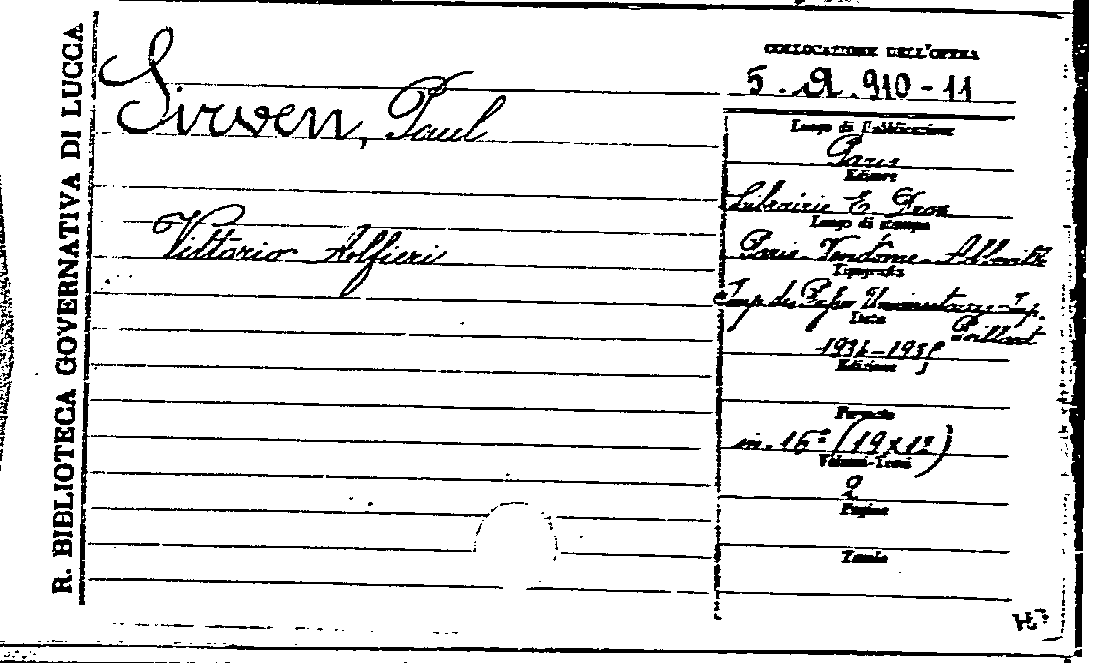 R. BIBLIOTECA GOVERNATIVA DI LUCCA
Sirven, Paul
Vittorio Alfieri
COLLOCAZIONE DELL'OPERA
5. A. 910-11
Luogo di Pubblicazione
Paris
Editore
Librairie E. Droz
Luogo di stampa
Paris - Vendôme - Abbeville
Tipografia
Imp. des Presses Universitaires - Imp.
Paillart
Data
1934-1935
Edizione
Formato
in. 16º (19x12)
Volumi-Tomi
2
Pagine
Tavole